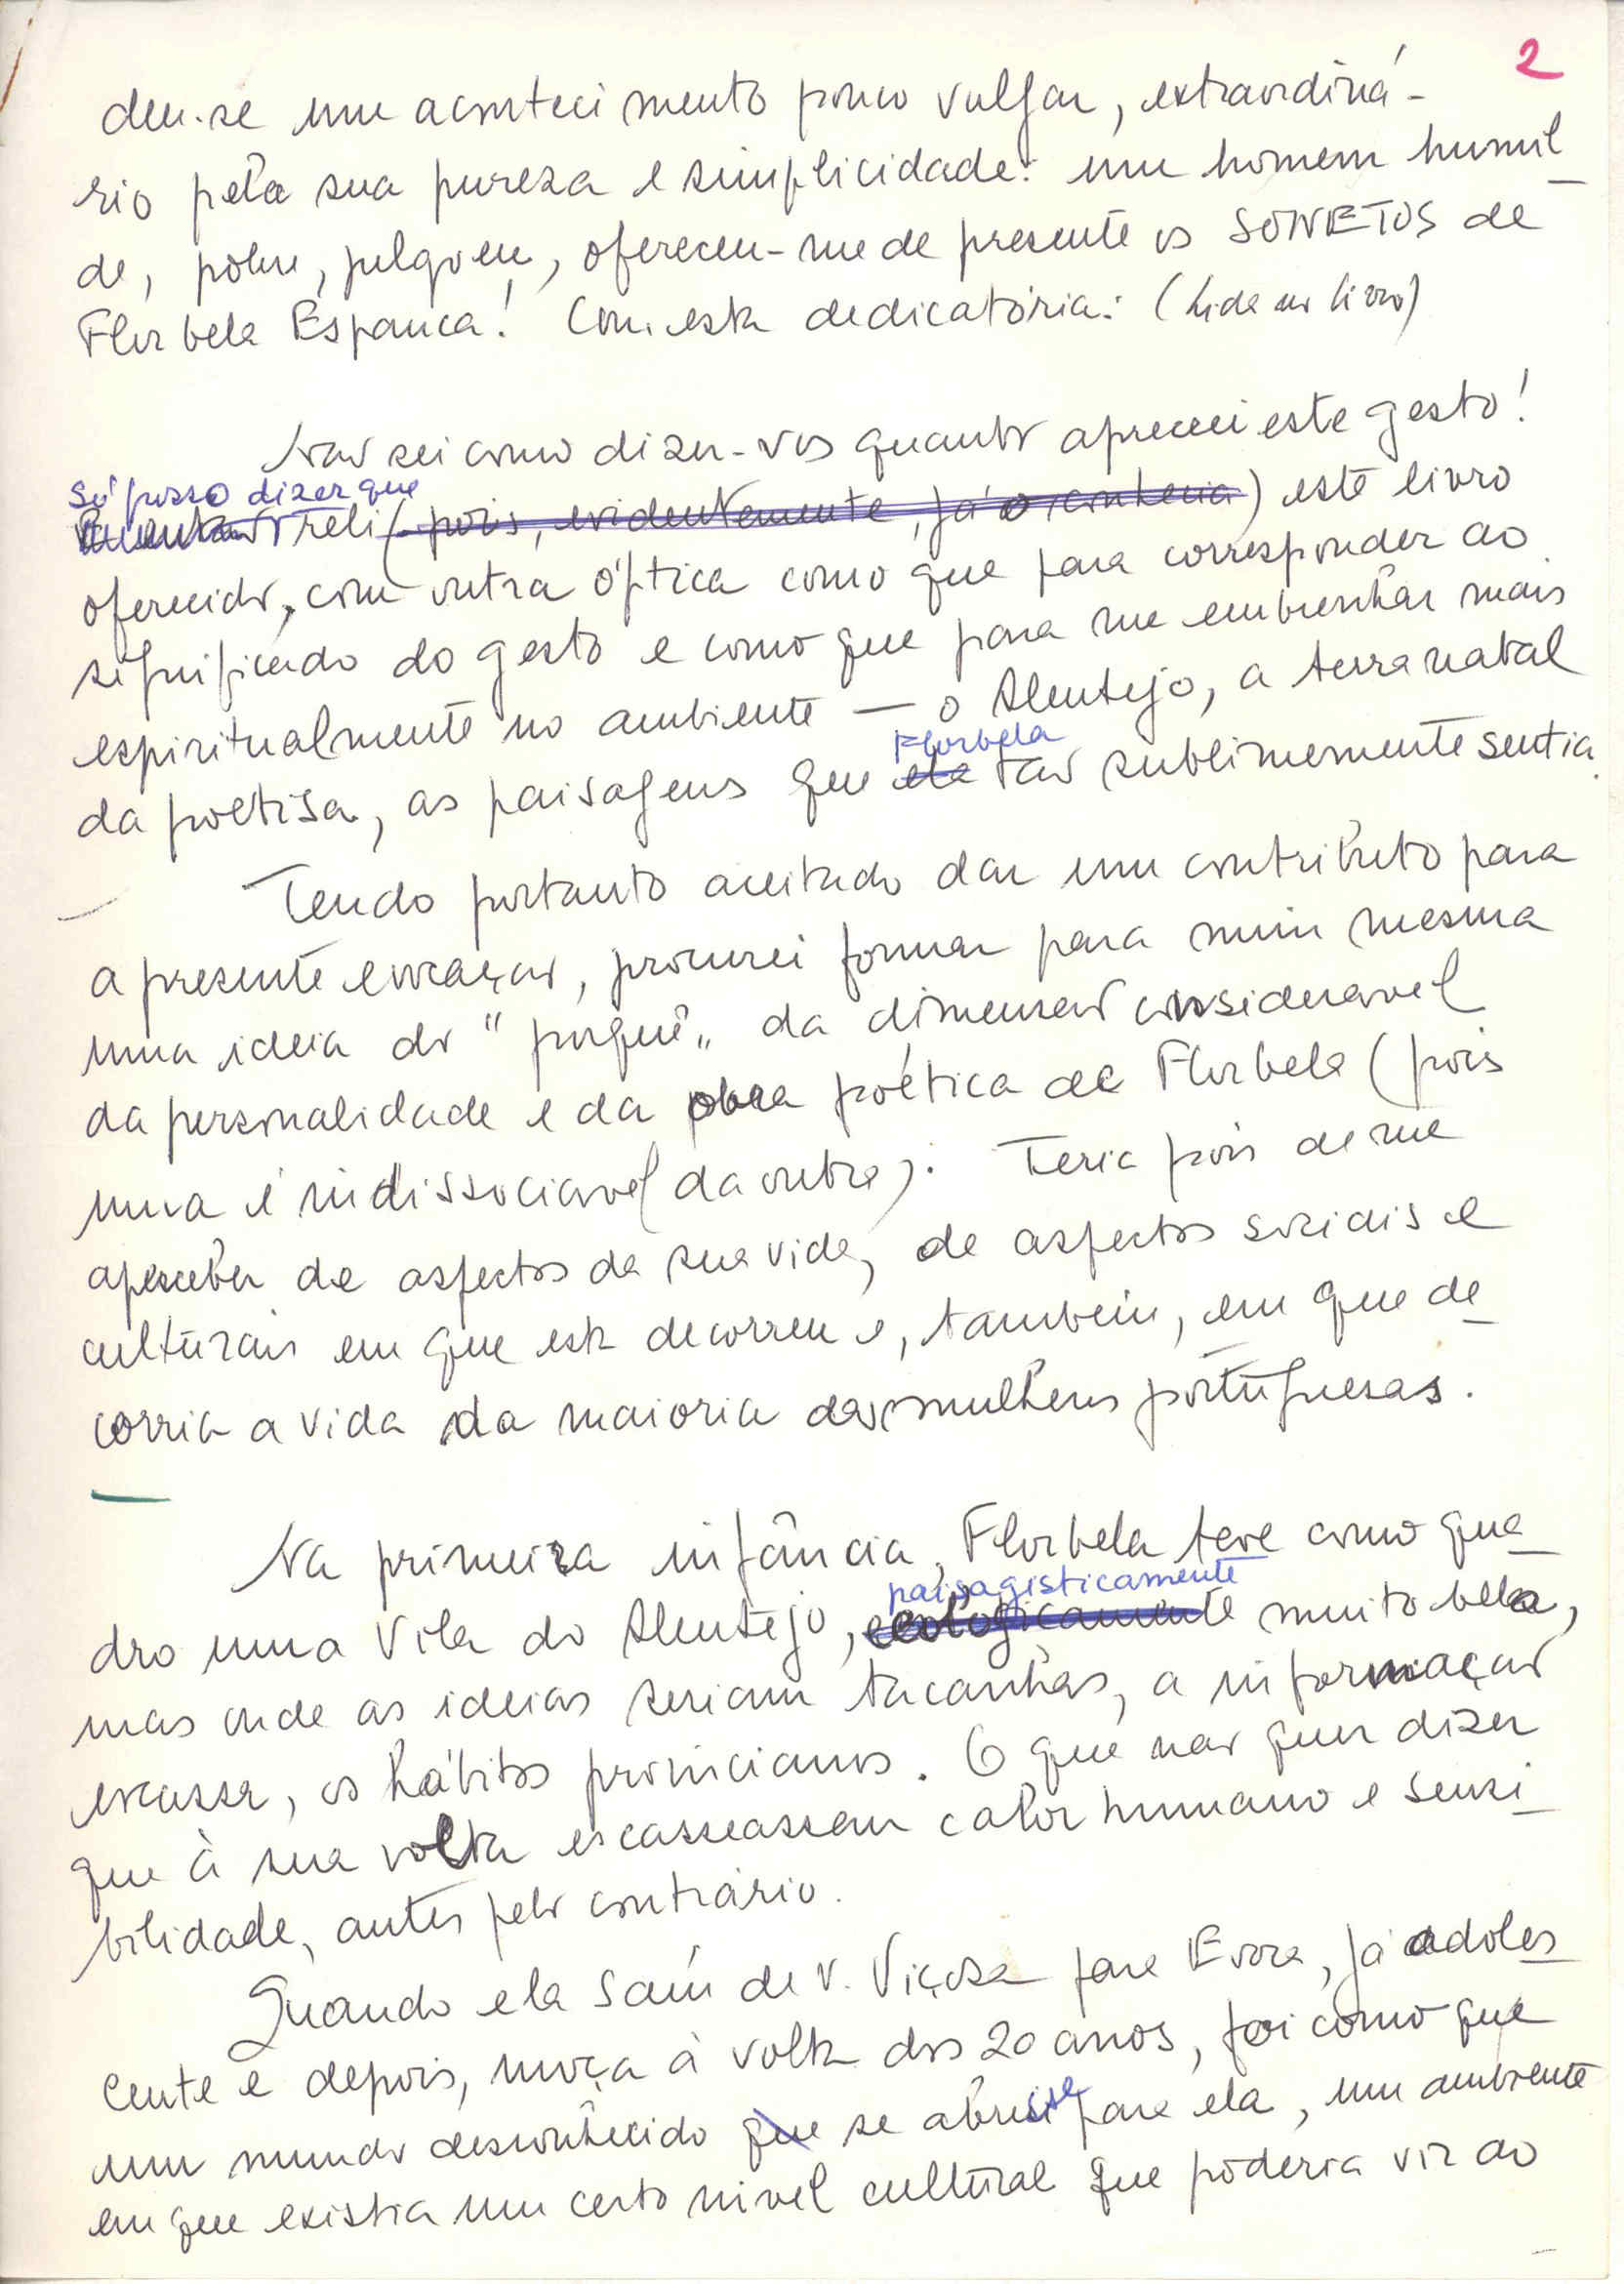 2
deu-se um acontecimento pouco vulgar, extraordiná-
rio pela sua pureza e simplicidade: um homem humil
de, pobre, julgo eu, ofereceu-me de presente os SONETOS de
Florbela Espanca! Com esta dedicatória: (Lida no livro)
Não sei como dizer-vos quanto apreciei este gesto!
Só posso dizer que
reli (pois, evidentemente, já o conhecia) este livro
oferecido, com outra óptica como que para corresponder ao
significado do gesto e como que para me embrenhar mais
espiritualmente no ambiente — o Alentejo, a terra natal
Florbela
da poetisa, as paisagens que ela tão sublimemente sentia.
Tendo portanto aceitado dar um contributo para
a presente evocação, procurei formar para mim mesma
uma ideia do "porquê" da dimensão considerável
da personalidade e da obra poética de Florbela (pois
uma é indissociável da outra). Teria pois de me
aperceber de aspectos da sua vida, de aspectos sociais e
culturais em que esta decorreu e, também, em que de
corria a vida da maioria das mulheres portuguesas.
Na primeira infância, Florbela teve como qua
paisagisticamente
dro uma Vila do Alentejo, ecologicamente muito bela,
mas onde as ideias seriam tacanhas, a informação
escassa, os hábitos provincianos. O que não quer dizer
que à sua volta escasseassem calor humano e sensi
bilidade, antes pelo contrário.
Quando ela saiu de V. Viçosa para Evora, já adoles
cente e depois, moça à volta dos 20 anos, foi como que
um mundo desconhecido que se abrisse para ela, um ambiente
em que existia um certo nivel cultural que poderia vir ao